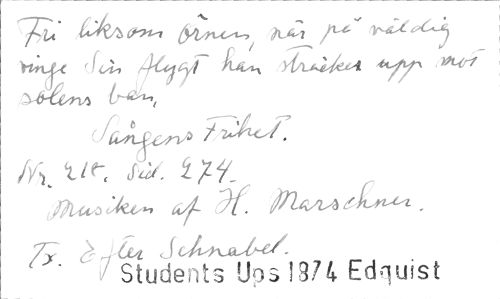 Fri liksom örnen, när på väldig
vinge Sin flygt han sträcker upp mot
solens ban,
Sångens Frihet.
Nr. 218. Sid. 274.
Musiken af H. Marschner.
Tx. Efter Schnabel.
Students Ups 1874 Edquist